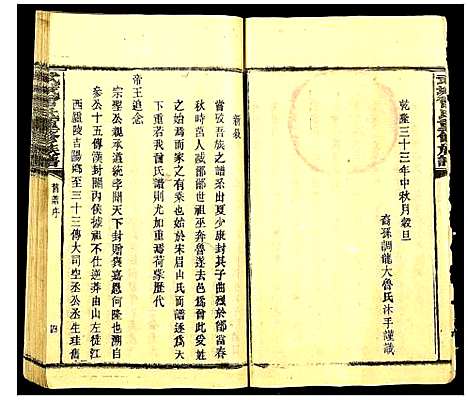 乾隆三十三年中秋月穀旦
裔孫調龍大魯氏沐手謹識
新敘
嘗攷吾族之譜系出夏少康封其子曲烈於鄫當春
秋時莒人滅鄫鄫世祖巫奔魯遂去邑為曾此受姓
之始為而家之有乘始於宋眉山氏而譜牒之作遂為天
下重若我曾氏譜則尤加重焉荷蒙歷代
帝王追念
宗聖公親承道統李開天下封贈與嘉恩何隆也我
參公十五傳漢封關內侯據祖不仕逆莽由山左徙江
西廬陵吉陽鄉至三十三傳大司空丞公丞生珪舊
舊譜序
四
武城曾氏重修族譜